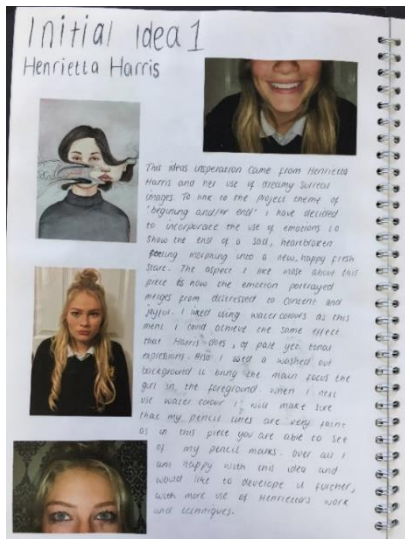 Initial Idea 1
Henrietta Harris
This ideas insperation came from Henrietta
Harris and her use of dreamy surreal
images. To link to the project theme of
'begining and/or end' i have decided
to incorporate the use of emotions i.o
show the end of a sad, heartbroken
feeling morphing into a new, happy fresh
start. The aspect I like most about this
piece is how the emotion portrayed
merges from distressed to content and
joyful. I liked using watercolours as this
ment i coud achieve the same effect
that Harris does, of pale yet tonal
expressions. Also I used a washed out
background to bring the main focus the
girl in the foreground. When i next
use water colour i will make sure
that my pencil lines are very faint
as in this piece you are able to see
of my pencil marks. Over all I
am happy with this idea and
would like to develope it further,
with more use of Henrietta's work
and techniques.